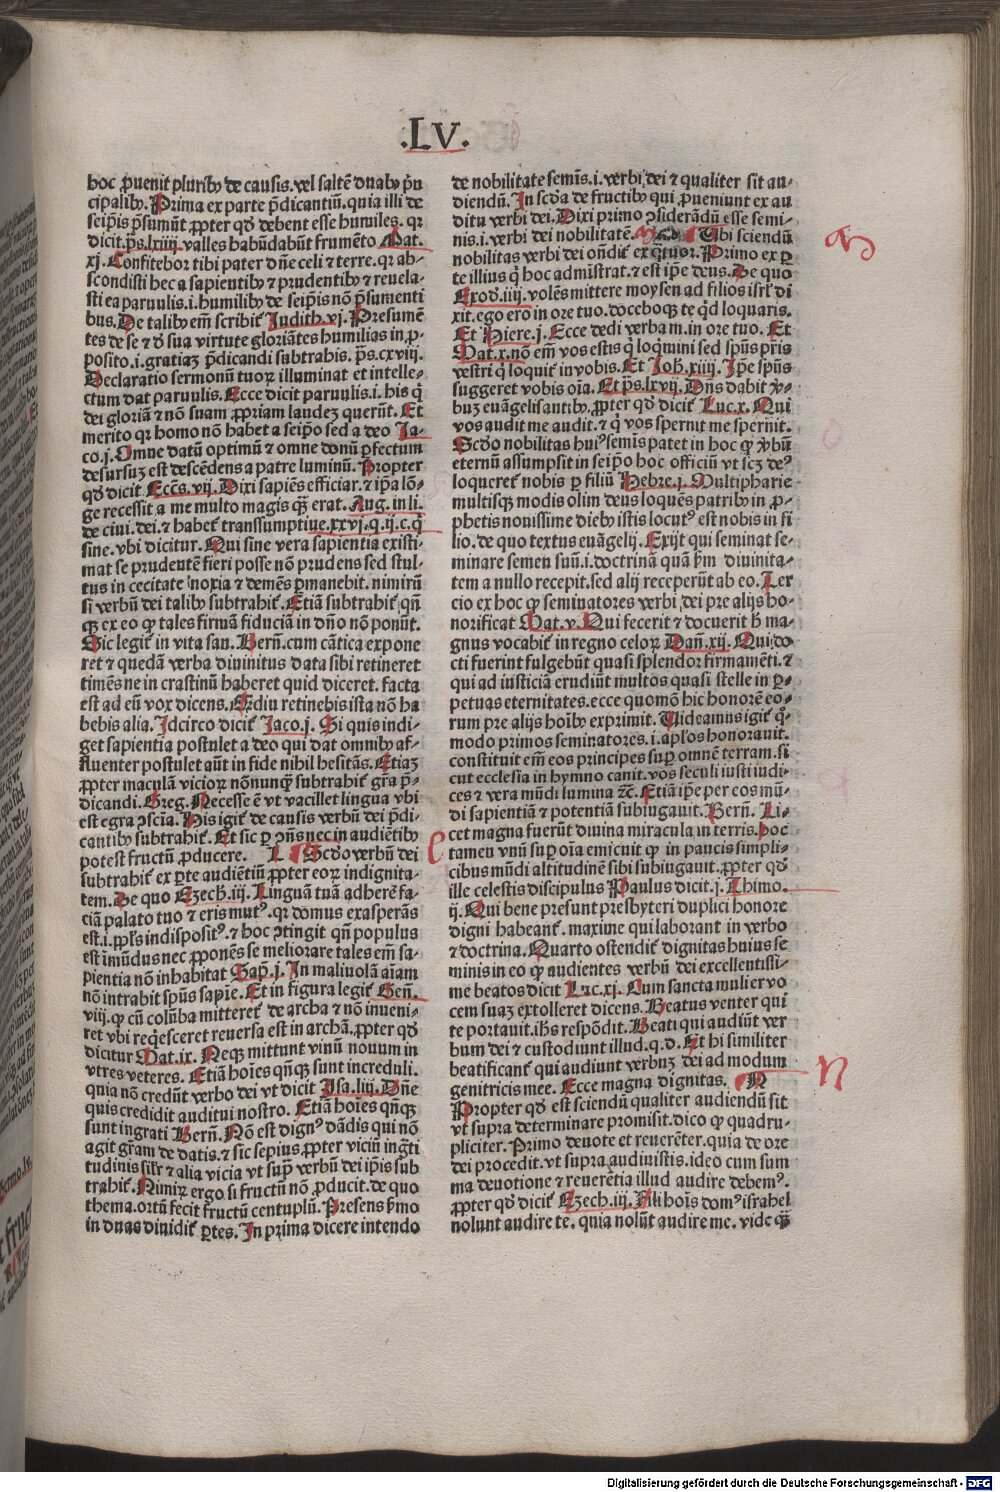 .LV.
hoc ꝓuenit pluribꝰ de causis. vel saltē duabꝰ pͥn
cipalibꝰ. Prima ex parte p̄dicantiū. quia illi de
seip̄is p̄sumūt ꝓpter qd̓ debent esse humiles. qr
dicit. ps̄. lxiiij. valles habūdabūt frumēto Mat.
xj. Confitebor tibi pater dn̄e celi ⁊ terre. qr ab-
scondisti hec a sapientibꝰ ⁊ prudentibꝰ ⁊ reuela-
sti ea paruulis. i. humilibꝰ de seip̄is nō p̄sumenti
bus. De talibꝰ em̄ scribit᷑ Judith. vj. Presumē
tes de se ⁊ d̓ sua virtute gloriātes humilias in ꝓ-
posito. i. gratiaz p̄dicandi subtrahis. ps̄. cxviij.
Declaratio sermonū tuoꝝ illuminat et intelle-
ctum dat paruulis. Ecce dicit paruulis. i. his q̇
dei gloriā ⁊ nō suam ꝓpriam laudez querūt. Et
merito qr homo nō habet a seip̄o sed a deo Ja-
co. j. Omne datū optimū ⁊ omne donū ꝑfectum
desursuz est descēdens a patre luminū. Propter
qd̓ dicit Eccs̄. vij. Dixi sapiēs efficiar. ⁊ ip̄a lō-
ge recessit a me multo magis qꝫ̄ erat. Aug. in li.
de ciui. dei. ⁊ habet᷑ transsumptiue. xxvj. q. ij. c. q̇
sine. vbi dicitur. Qui sine vera sapientia existi-
mat se prudentē fieri posse nō prudens sed stul-
tus in cecitate noxia ⁊ demēs ꝑmanebit. nimirū
si verbū dei talibꝰ subtrahit᷑. Etiā subtrahit᷑ qn̄
qꝫ ex eo ꝙ tales firmā fiduciā in dn̄o nō ponūt.
Sic legit᷑ in vita san. Bern̄. cum cātica expone
ret ⁊ quedā verba diuinitus data sibi retineret
timēs ne in crastinū haberet quid diceret. facta
est ad eū vox dicens. Ediu retinebis ista nō ha
bebis alia. Idcirco dicit᷑ Jaco. j. Si quis indi-
get sapientia postulet a deo qui dat omnibꝰ af-
fluenter postulet aūt in fide nihil hesitās. Etiaz
ꝓpter maculā vicioꝝ nōnunqꝫ̄ subtrahit᷑ grā p̄-
dicandi. Greg. Necesse ē vt vacillet lingua vbi
est egra ꝯscīa. His igit᷑ de causis verbū dei p̄di-
cantibꝰ subtrahit᷑. Et sic ꝑ ꝯn̄s nec in audiētibꝰ
potest fructū ꝓducere. L Scd̓o verbū dei
subtrahit᷑ ex ꝑte audiētiū ꝓpter eoꝝ indignita-
tem. De quo Ezech. iij. Linguā tuā adherē fa-
ciā palato tuo ⁊ eris mutꝰ. qr domus exasperās
est. i. ppl̄s indispositꝰ. ⁊ hoc ꝯtingit qn̄ populus
est imūdus nec ꝓponēs se meliorare tales em̄ sa-
pientia nō inhabitat Sap̄. j. In maliuolā aīam
nō intrabit spūs sapīe. Et in figura legit᷑ Gen̄.
viij. ꝙ cū colūba mitteret᷑ de archa ⁊ nō inueni-
ret vbi req̇esceret reuersa est in archā. ꝓpter qd̓
dicitur Mat. ix. Neqꝫ mittunt vinū nouum in
vtres veteres. Etiā hoīes qn̄qꝫ sunt increduli.
quia nō credūt verbo dei vt dicit Isa. liij. Dn̄e
quis credidit auditui nostro. Etiā hoīes qn̄qꝫ
sunt ingrati Bern̄. Nō est dignꝰ dādis qui nō
agit gr̄am de datis. ⁊ sic sepius ꝓpter viciū ingͣti
tudinis sil̄r ⁊ alia vicia vt supͣ verbū dei ip̄is sub
trahit᷑. Nimiꝝ ergo si fructū nō ꝓducit. de quo
thema. ortū fecit fructū centuplū. Presens ẜmo
in duas diuidit᷑ ꝑtes. In prima dicere intendo
de nobilitate semīs. i. verbi dei ⁊ qualiter sit au-
diendū. In scd̓a de fructibꝰ qui ꝓueniunt ex au
ditu verbi dei. Dixi primo ꝯsiderādū esse semi-
nis. i. verbi dei nobilitatē. Ubi sciendū
nobilitas verbi dei on̄dit᷑ ex qͣtuor. Primo ex ꝑ
te illius q̇ hoc admistrat. ⁊ est ip̄e deus. De quo
Exod. iiij. volēs mittere moysen ad filios isrl̄ di
xit. ego ero in ore tuo. docebogꝫ te qͥd loquaris.
Et Hiere. j. Ecce dedi verba m. in ore tuo. Et
Mat. x. nō em̄ vos estis q̇ loqmini sed spūs pr̄is
vestri q̇ loquit᷑ in vobis. Et Joh. xiiij. Ip̄e spūs
suggeret vobis oīa. Et ps̄. lxvij. Dn̄s dabit v̓-
buz euāgelisantibꝰ. ꝓpter qd̓ dicit᷑ Luc. x. Qui
vos audit me audit. ⁊ q̇ vos spernit me spernit.
Scd̓o nobilitas huiꝰ semīs patet in hoc ꝙ v̓bū
eternū assumpsit in seip̄o hoc officiū vt scz deꝰ
loqueret᷑ nobis ꝑ filiū Hebre. j. Multipharie
multisqꝫ modis olim deus loquēs patribꝰ in ꝓ-
phetis nouissime diebꝰ istis locutꝰ est nobis in fi
lio. de quo textus euāgelij. Exijt qui seminat se-
minare semen suū. i. doctrinā quā ẜm diuinita-
tem a nullo recepit. sed alij receperūt ab eo. Ter
cio ex hoc ꝙ seminatores verbi dei pre alijs ho-
norificat Mat. v. Qui fecerit ⁊ docuerit h̓ ma-
gnus vocabit᷑ in regno celoꝝ Dan̄. xij. Qui do
cti fuerint fulgebūt quasi splendor firmamēti. ⁊
qui ad iusticiā erudiūt multos quasi stelle in ꝑ-
petuas eternitates. ecce quomō hic honorē eo-
rum pre alijs hoībꝰ exprimit. Uideamus igit᷑ q̄-
modo primos seminatores. i. apl̄os honorauit.
constituit em̄ eos principes suꝑ omnē terram. si
cut ecclesia in hymno canit. vos seculi iusti iudi-
ces ⁊ vera mūdi lumina ⁊c̄. Etiā ip̄e per eos mū-
di sapientiā ⁊ potentiā subiugauit. Bern̄. Li-
cet magna fuerūt diuina miracula in terris. hoc
tamen vnū suꝑ oīa emicuit ꝙ in paucis simpli-
cibus mūdi altitudinē sibi subiugauit. ꝓpter qd̓
ille celestis discipulus Paulus dicit. j. Thimo.
ij. Qui bene presunt presbyteri duplici honore
digni habeant᷑. maxime qui laborant in verbo
⁊ doctrina. Quarto ostendit᷑ dignitas huius se
minis in eo ꝙ audientes verbū dei excellentissi-
me beatos dicit Luc. xj. Cum sancta mulier vo
cem suaz extolleret dicens. Beatus venter qui
te portauit. ih̄s respōdit. Beati qui audiūt ver
bum dei ⁊ custodiunt illud. q. d. Et hi similiter
beatificant᷑ qui audiunt verbuz dei ad modum
genitricis mee. Ecce magna dignitas. N
Propter qd̓ est sciendū qualiter audiendū sit
vt supra determinare promisit. dico ꝙ quadru-
pliciter. Primo deuote et reuerēter. quia de ore
dei procedit. vt supra audiuistis. ideo cum sum
ma deuotione ⁊ reuerētia illud audire debemꝰ.
ꝓpter qd̓ dicit᷑ Ezech. iij. Filii hoīs domꝰ israhel
nolunt audire te. quia nolūt audire me. vide qꝫ̄
N
Digitalisierung gefördert durch die Deutsche Forschungsgemeinschaft - DFG